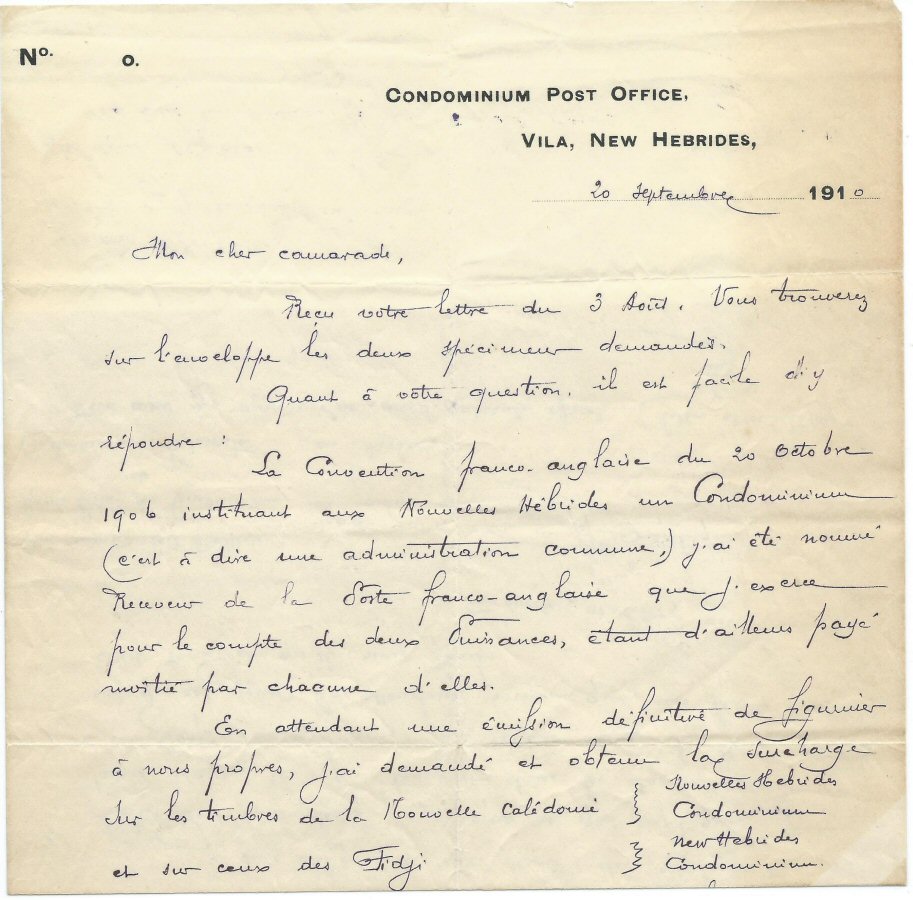 No. o.
CONDOMINIUM POST OFFICE,
VILA, NEW HEBRIDES,
20 Septembre 1910
Mon cher camarade,
Reçu votre lettre du 3 Août. Vous trouverez
sur l'enveloppe les deux spécimens demandés.
Quant à votre question, il est facile d'y
répondre :
La Convention franco-anglaise du 20 Octobre
1906 instituant aux Nouvelles Hébrides un Condominium
(c'est à dire une administration commune,) j'ai été nommé
Receveur de la Poste franco-anglaise que j'exerce
pour le compte des deux Puissances, étant d'ailleurs payé
moitié par chacune d'elles.
En attendant une émission définitive de figurines
à nous propres, j'ai demandé et obtenu la surcharge
sur les timbres de la Nouvelle Calédonie } Nouvelles Hebrides
Condominium
et sur ceux des Fidji } New Hebrides
Condominium.